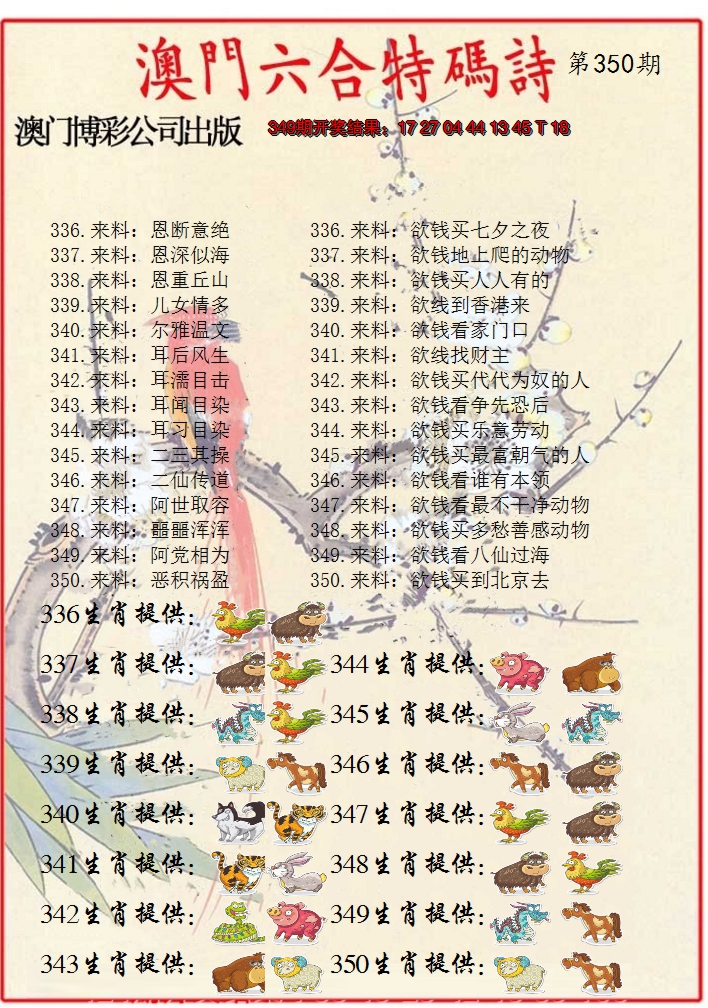 澳門六合特碼詩 第350期
澳门博彩公司出版 349期开奖结果：17 27 04 44 13 45 T 18
336.来料：恩断意绝 336.来料：欲钱买七夕之夜
337.来料：恩深似海 337.来料：欲钱地上爬的动物
338.来料：恩重丘山 338.来料：欲钱买人人有的
339.来料：儿女情多 339.来料：欲线到香港来
340.来料：尔雅温文 340.来料：欲钱看家门口
341.来料：耳后风生 341.来料：欲线找财主
342.来料：耳濡目击 342.来料：欲钱买代代为奴的人
343.来料：耳闻目染 343.来料：欲钱看争先恐后
344.来料：耳习目染 344.来料：欲钱买乐意劳动
345.来料：二三其操 345.来料：欲钱买最富朝气的人
346.来料：二仙传道 346.来料：欲钱看谁有本领
347.来料：阿世取容 347.来料：欲钱看最不干净动物
348.来料：噩噩浑浑 348.来料：欲钱买多愁善感动物
349.来料：阿党相为 349.来料：欲钱看八仙过海
350.来料：恶积祸盈 350.来料：欲钱买到北京去
336生肖提供：
337生肖提供： 344生肖提供：
338生肖提供： 345生肖提供：
339生肖提供： 346生肖提供：
340生肖提供： 347生肖提供：
341生肖提供： 348生肖提供：
342生肖提供： 349生肖提供：
343生肖提供： 350生肖提供：